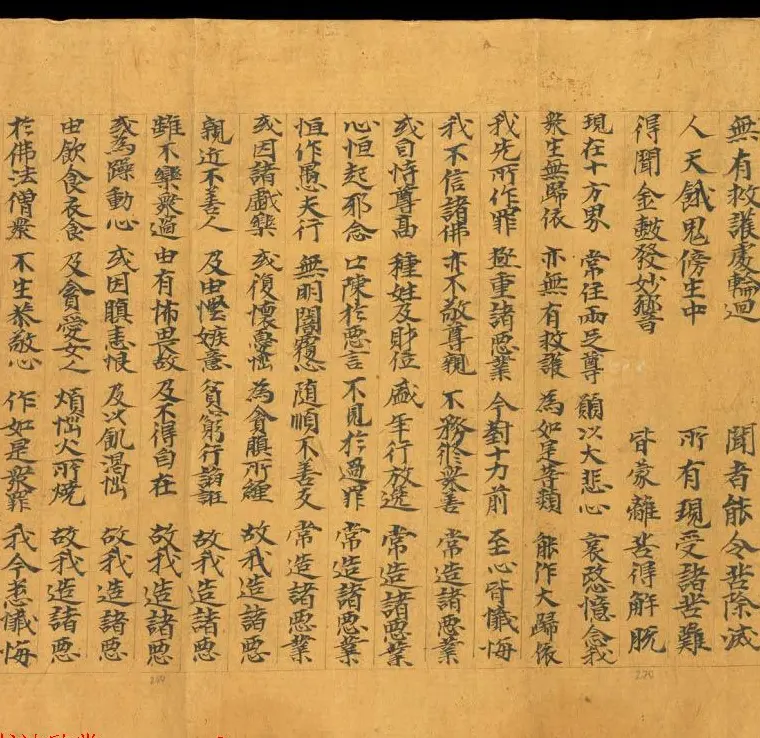 無有救護處輪迴 聞者能令苦除滅
人天餓鬼傍生中 所有現受諸苦難
得聞金鼓發妙響 皆蒙離苦得解脫
現在十方界 常住兩足尊 願以大悲心 哀愍憶念我
眾生無歸依 亦無有救護 為如是等類 能作大歸依
我先所作罪 極重諸惡業 今對十力前 至心皆懺悔
我不信諸佛 亦不敬尊親 不務修眾善 常造諸惡業
或自恃尊高 種姓及財位 盛年行放逸 常造諸惡業
心恒起邪念 口陳於惡言 不見於過罪 常造諸惡業
恒作愚夫行 無明闇覆心 隨順不善友 常造諸惡業
或因諸戲樂 或復懷憂惱 為貪瞋所纏 故我造諸惡
親近不善人 及由慳嫉意 貧窮行諂誑 故我造諸惡
雖不樂眾過 由有怖畏故 及不得自在 故我造諸惡
或為躁動心 或因瞋恚恨 及以飢渴惱 故我造諸惡
由飲食衣食 及貪愛女人 煩惱火所燒 故我造諸惡
於佛法僧眾 不生恭敬心 作如是眾罪 我今悉懺悔
270
280